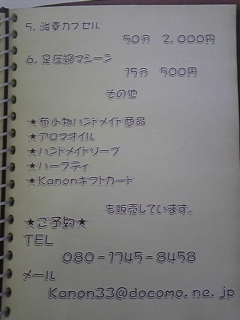 5. 岩盤カプセル
50分 2,000円
6. 足圧縮マシーン
15分 500円
その他
★布小物ハンドメイド商品
★アロマオイル
★ハンドメイドソープ
★ハーブティ
★Kanonギフトカード
も販売しています。
★ご予約★
TEL
080-1745-8458
メール
Kanon33@docomo.ne.jp